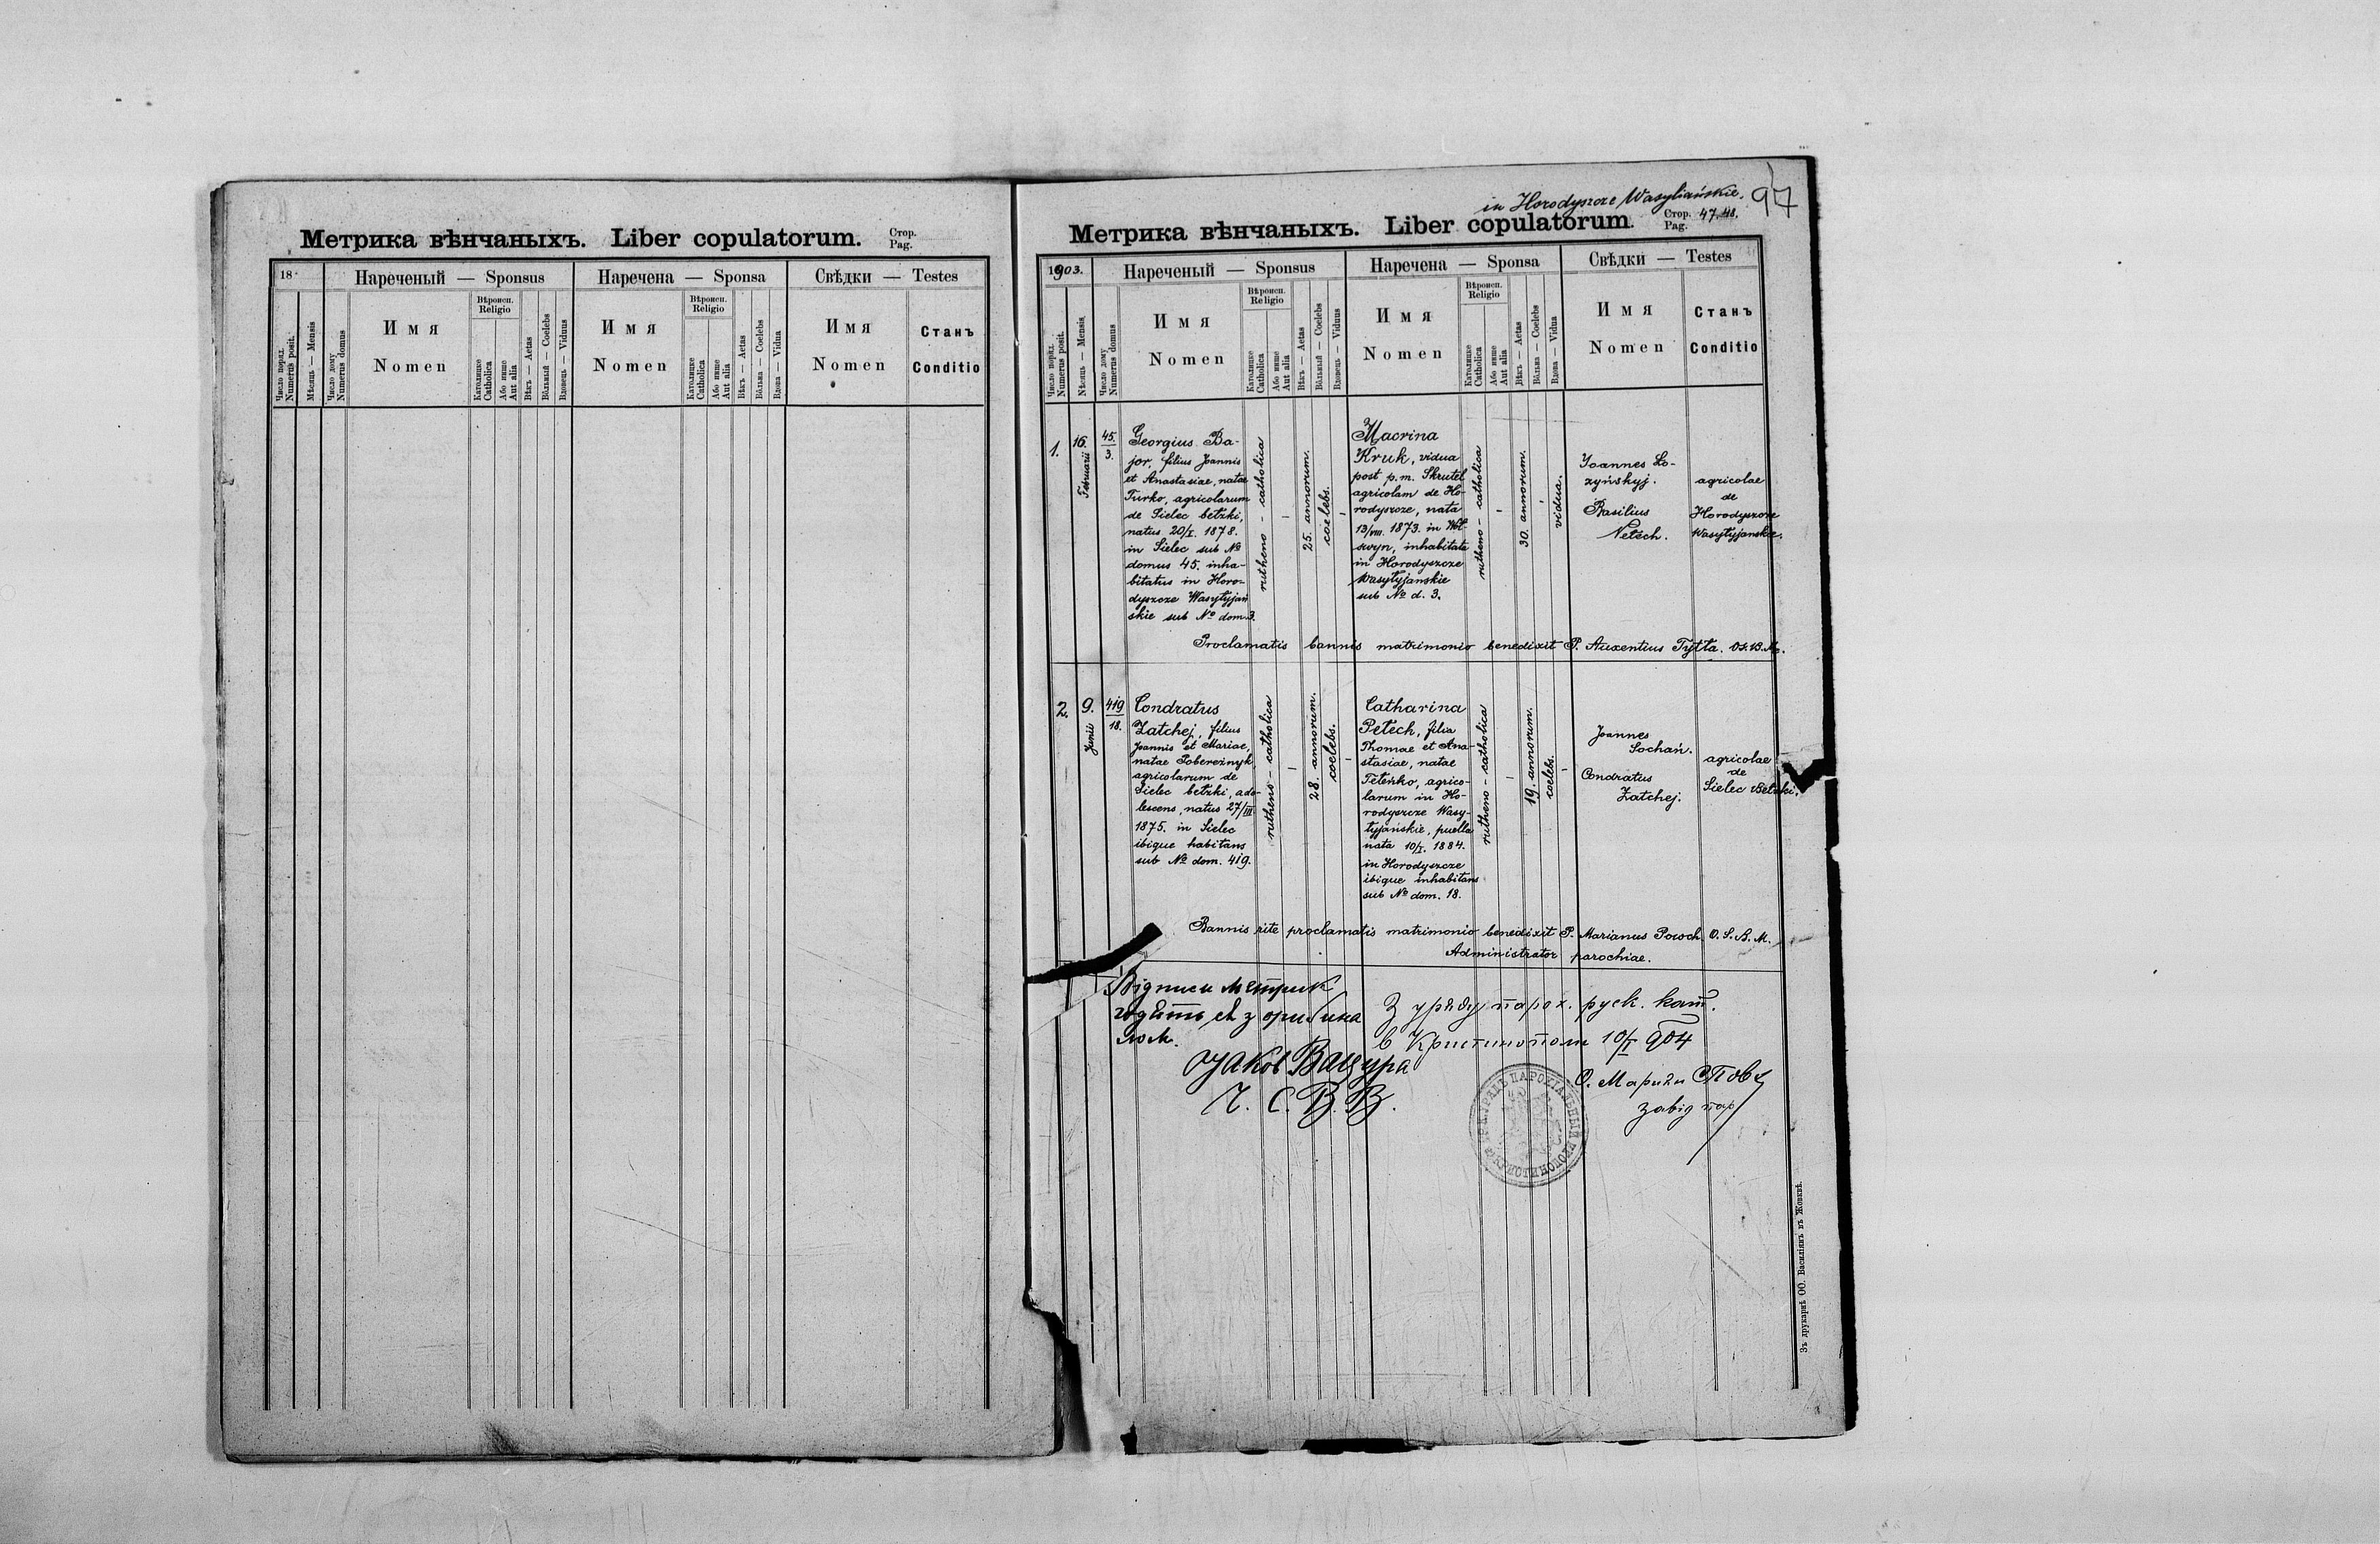 Метрика вѣнчаныхъ. Liber copulatorum. Стор. Pag.
18
Нареченый — Sponsus
Наречена — Sponsa
Свѣдки — Testes
Число поряд. Numerus posit.
Мѣсяць — Mensis
Число дому Numerus domus
Имя Nomen
Вѣроисп. Religio
Католицке Catholica
Або инше Aut alia
Вѣкъ — Aetas
Вôльный — Coelebs
Вдовець — Viduus
Имя Nomen
Вѣроисп. Religio
Католицке Catholica
Або инше Aut alia
Вѣкъ — Aetas
Вôльна — Coelebs
Вдова — Vidua
Имя Nomen
Станъ Conditio
in Horodyszcze Wasyliańskie.
97
Метрика вѣнчаныхъ. Liber copulatorum. Стор. Pag. 47.48.
1903.
Нареченый — Sponsus
Наречена — Sponsa
Свѣдки — Testes
Число поряд. Numerus posit.
Мѣсяць — Mensis
Число дому Numerus domus
Имя Nomen
Вѣроисп. Religio
Католицке Catholica
Або инше Aut alia
Вѣкъ — Aetas
Вôльный — Coelebs
Вдовець — Viduus
Имя Nomen
Вѣроисп. Religio
Католицке Catholica
Або инше Aut alia
Вѣкъ — Aetas
Вôльна — Coelebs
Вдова — Vidua
Имя Nomen
Станъ Conditio
1.
16.
Februarii
45.
3.
Georgius Ba-
jor, filius Joannis
et Anastasiae, natae
Turko, agricolarum
de Sielec bełzki,
natus 20/I. 1878.
in Sielec sub №
domus 45. inha-
bitatus in Horo-
dyszcze Wasyłyjań
skie sub № dom. 3.
rutheno - catholica
-
25. annorum.
coelebs.
-
Macrina
Kruk, vidua
post p. m. Skrutel
agricolam de Ho-
rodyszcze, nata
13/VIII. 1873. in Woł-
swyn, inhabitata
in Horodyszcze
Wasyłyjanskie
sub № d. 3.
rutheno - catholica
-
30. annorum.
-
vidua.
Joannes Ło-
zyńskyj.
Basilius
Netéch.
agricolae
de
Horodyszcze
Wasyłyjanskie.
Proclamatis bannis matrimonio benedixit P. Auxentius Tytła. O.S.B.M.
2.
9.
Junii
419
18.
Condratus
Zatchej, filius
Joannis et Mariae,
natae Sobereżnyk,
agricolarum de
Sielec bełzki, ado-
lescens, natus 27/III
1875. in Sielec
ibique habitans
sub № dom. 419.
rutheno - catholica
-
28. annorum.
coelebs.
-
Catharina
Petéch, filia
Thomae et Ana-
stasiae, natae
Teteńko, agrico-
larum in Ho-
rodyszcze Wasy-
łyjańskie, puella
nata 10/I. 1884.
in Horodyszcze
ibique inhabitans
sub № dom. 18.
rutheno - catholica
-
19. annorum.
coelebs.
-
Joannes
Sochań.
Condratus
Zatchej.
agricolae
de
Sielec Bełzki.
Bannis rite proclamatis matrimonio benedixit P. Marianus Powch O.S.B.M.
Administrator parochiae.
Відписи метрик
з
Яков Вацура
Ч. С. В. В.
З уряду парох. руск. кат.
в Кристинополи 10/I 904
О. Мариян Повх
завід пар
Зъ друкарнѣ ОО. Василіянъ въ Жовквѣ.